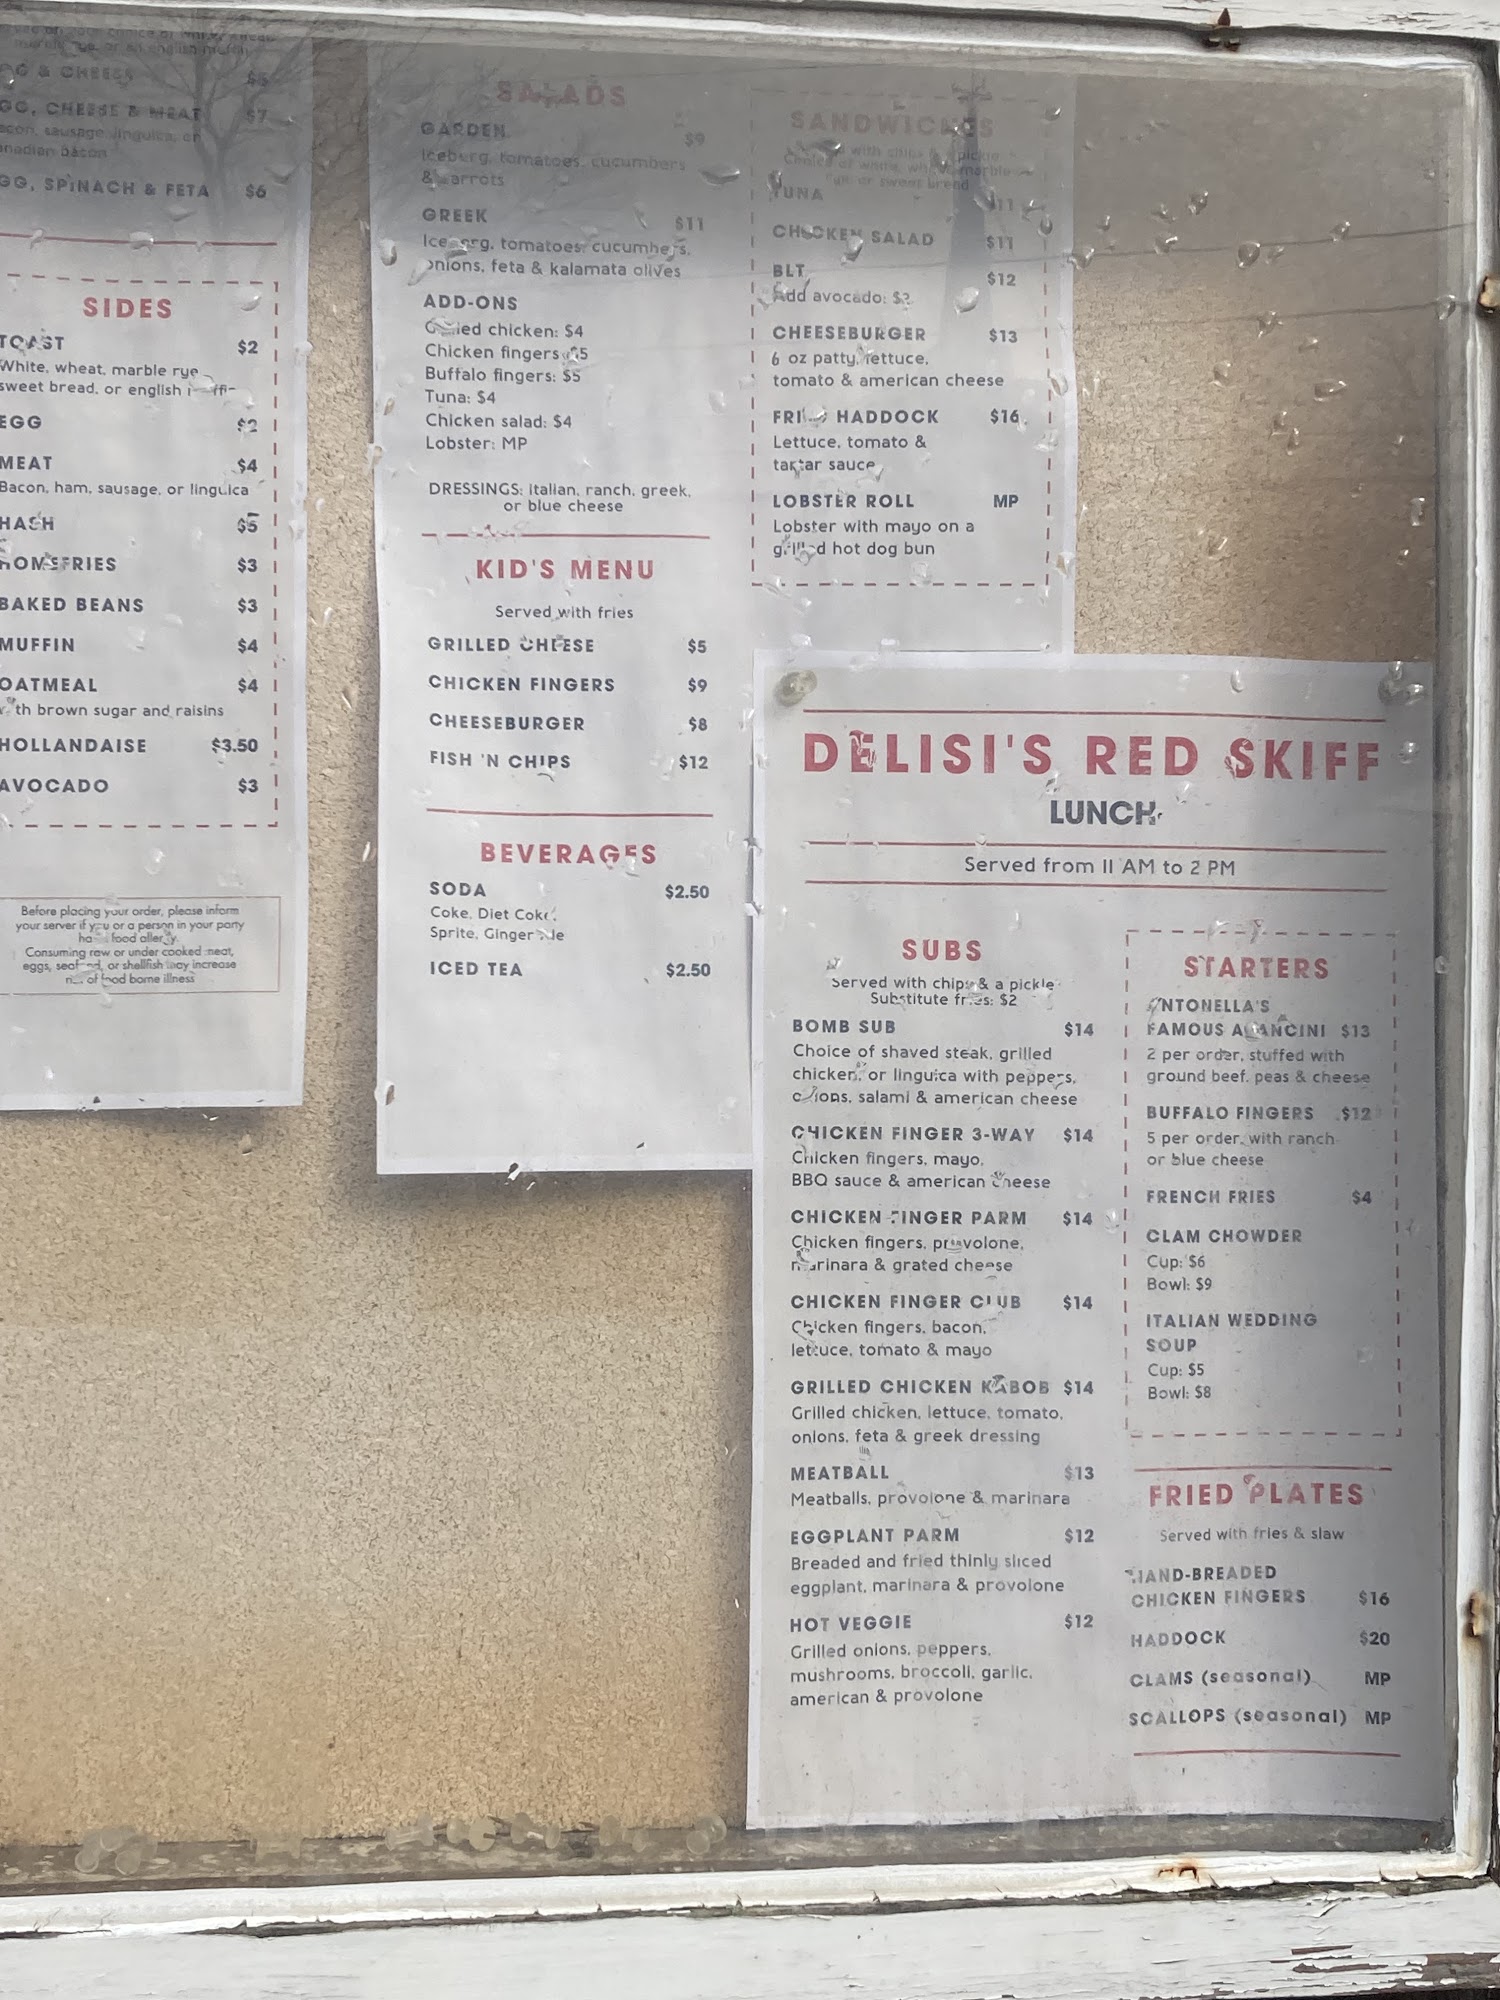 & CHEESE $5
GG, CHEESE & MEAT $7
bacon, sausage, linguica, or
canadian bacon
GG, SPINACH & FETA $6
SIDES
TOAST $2
White, wheat, marble rye
sweet bread, or english
EGG $2
MEAT $4
Bacon, ham, sausage, or linguica
HASH $5
HOMEFRIES $3
BAKED BEANS $3
MUFFIN $4
OATMEAL $4
with brown sugar and raisins
HOLLANDAISE $3.50
AVOCADO $3
Before placing your order, please inform
your server if you or a person in your party
has a food allergy.
Consuming raw or under cooked meat,
eggs, seafood, or shellfish may increase
risk of food borne illness
SALADS
GARDEN $9
Iceberg, tomatoes, cucumbers
& carrots
GREEK $11
Iceberg, tomatoes, cucumbers,
onions, feta & kalamata olives
ADD-ONS
Grilled chicken: $4
Chicken fingers: $5
Buffalo fingers: $5
Tuna: $4
Chicken salad: $4
Lobster: MP
DRESSINGS: Italian, ranch, greek,
or blue cheese
KID'S MENU
Served with fries
GRILLED CHEESE $5
CHICKEN FINGERS $9
CHEESEBURGER $8
FISH 'N CHIPS $12
BEVERAGES
SODA $2.50
Coke, Diet Coke,
Sprite, Ginger Ale
ICED TEA $2.50
SANDWICHES
Served with chips & a pickle
Choice of white, wheat, marble
rye or sweet bread
TUNA $11
CHICKEN SALAD $11
BLT $12
Add avocado:
CHEESEBURGER $13
6 oz patty, lettuce,
tomato & american cheese
FRIED HADDOCK $16
Lettuce, tomato &
tartar sauce
LOBSTER ROLL MP
Lobster with mayo on a
grilled hot dog bun
DELISI'S RED SKIFF
LUNCH
Served from 11 AM to 2 PM
SUBS
Served with chips & a pickle
Substitute fries: $2
BOMB SUB $14
Choice of shaved steak, grilled
chicken, or linguica with peppers,
onions, salami & american cheese
CHICKEN FINGER 3-WAY $14
Chicken fingers, mayo,
BBQ sauce & american cheese
CHICKEN FINGER PARM $14
Chicken fingers, provolone,
marinara & grated cheese
CHICKEN FINGER CLUB $14
Chicken fingers, bacon,
lettuce, tomato & mayo
GRILLED CHICKEN KABOB $14
Grilled chicken, lettuce, tomato,
onions, feta & greek dressing
MEATBALL $13
Meatballs, provolone & marinara
EGGPLANT PARM $12
Breaded and fried thinly sliced
eggplant, marinara & provolone
HOT VEGGIE $12
Grilled onions, peppers,
mushrooms, broccoli, garlic,
american & provolone
STARTERS
ANTONELLA'S
FAMOUS ARANCINI $13
2 per order, stuffed with
ground beef, peas & cheese
BUFFALO FINGERS $12
5 per order, with ranch
or blue cheese
FRENCH FRIES $4
CLAM CHOWDER
Cup: $6
Bowl: $9
ITALIAN WEDDING
SOUP
Cup: $5
Bowl: $8
FRIED PLATES
Served with fries & slaw
HAND-BREADED
CHICKEN FINGERS $16
HADDOCK $20
CLAMS (seasonal) MP
SCALLOPS (seasonal) MP